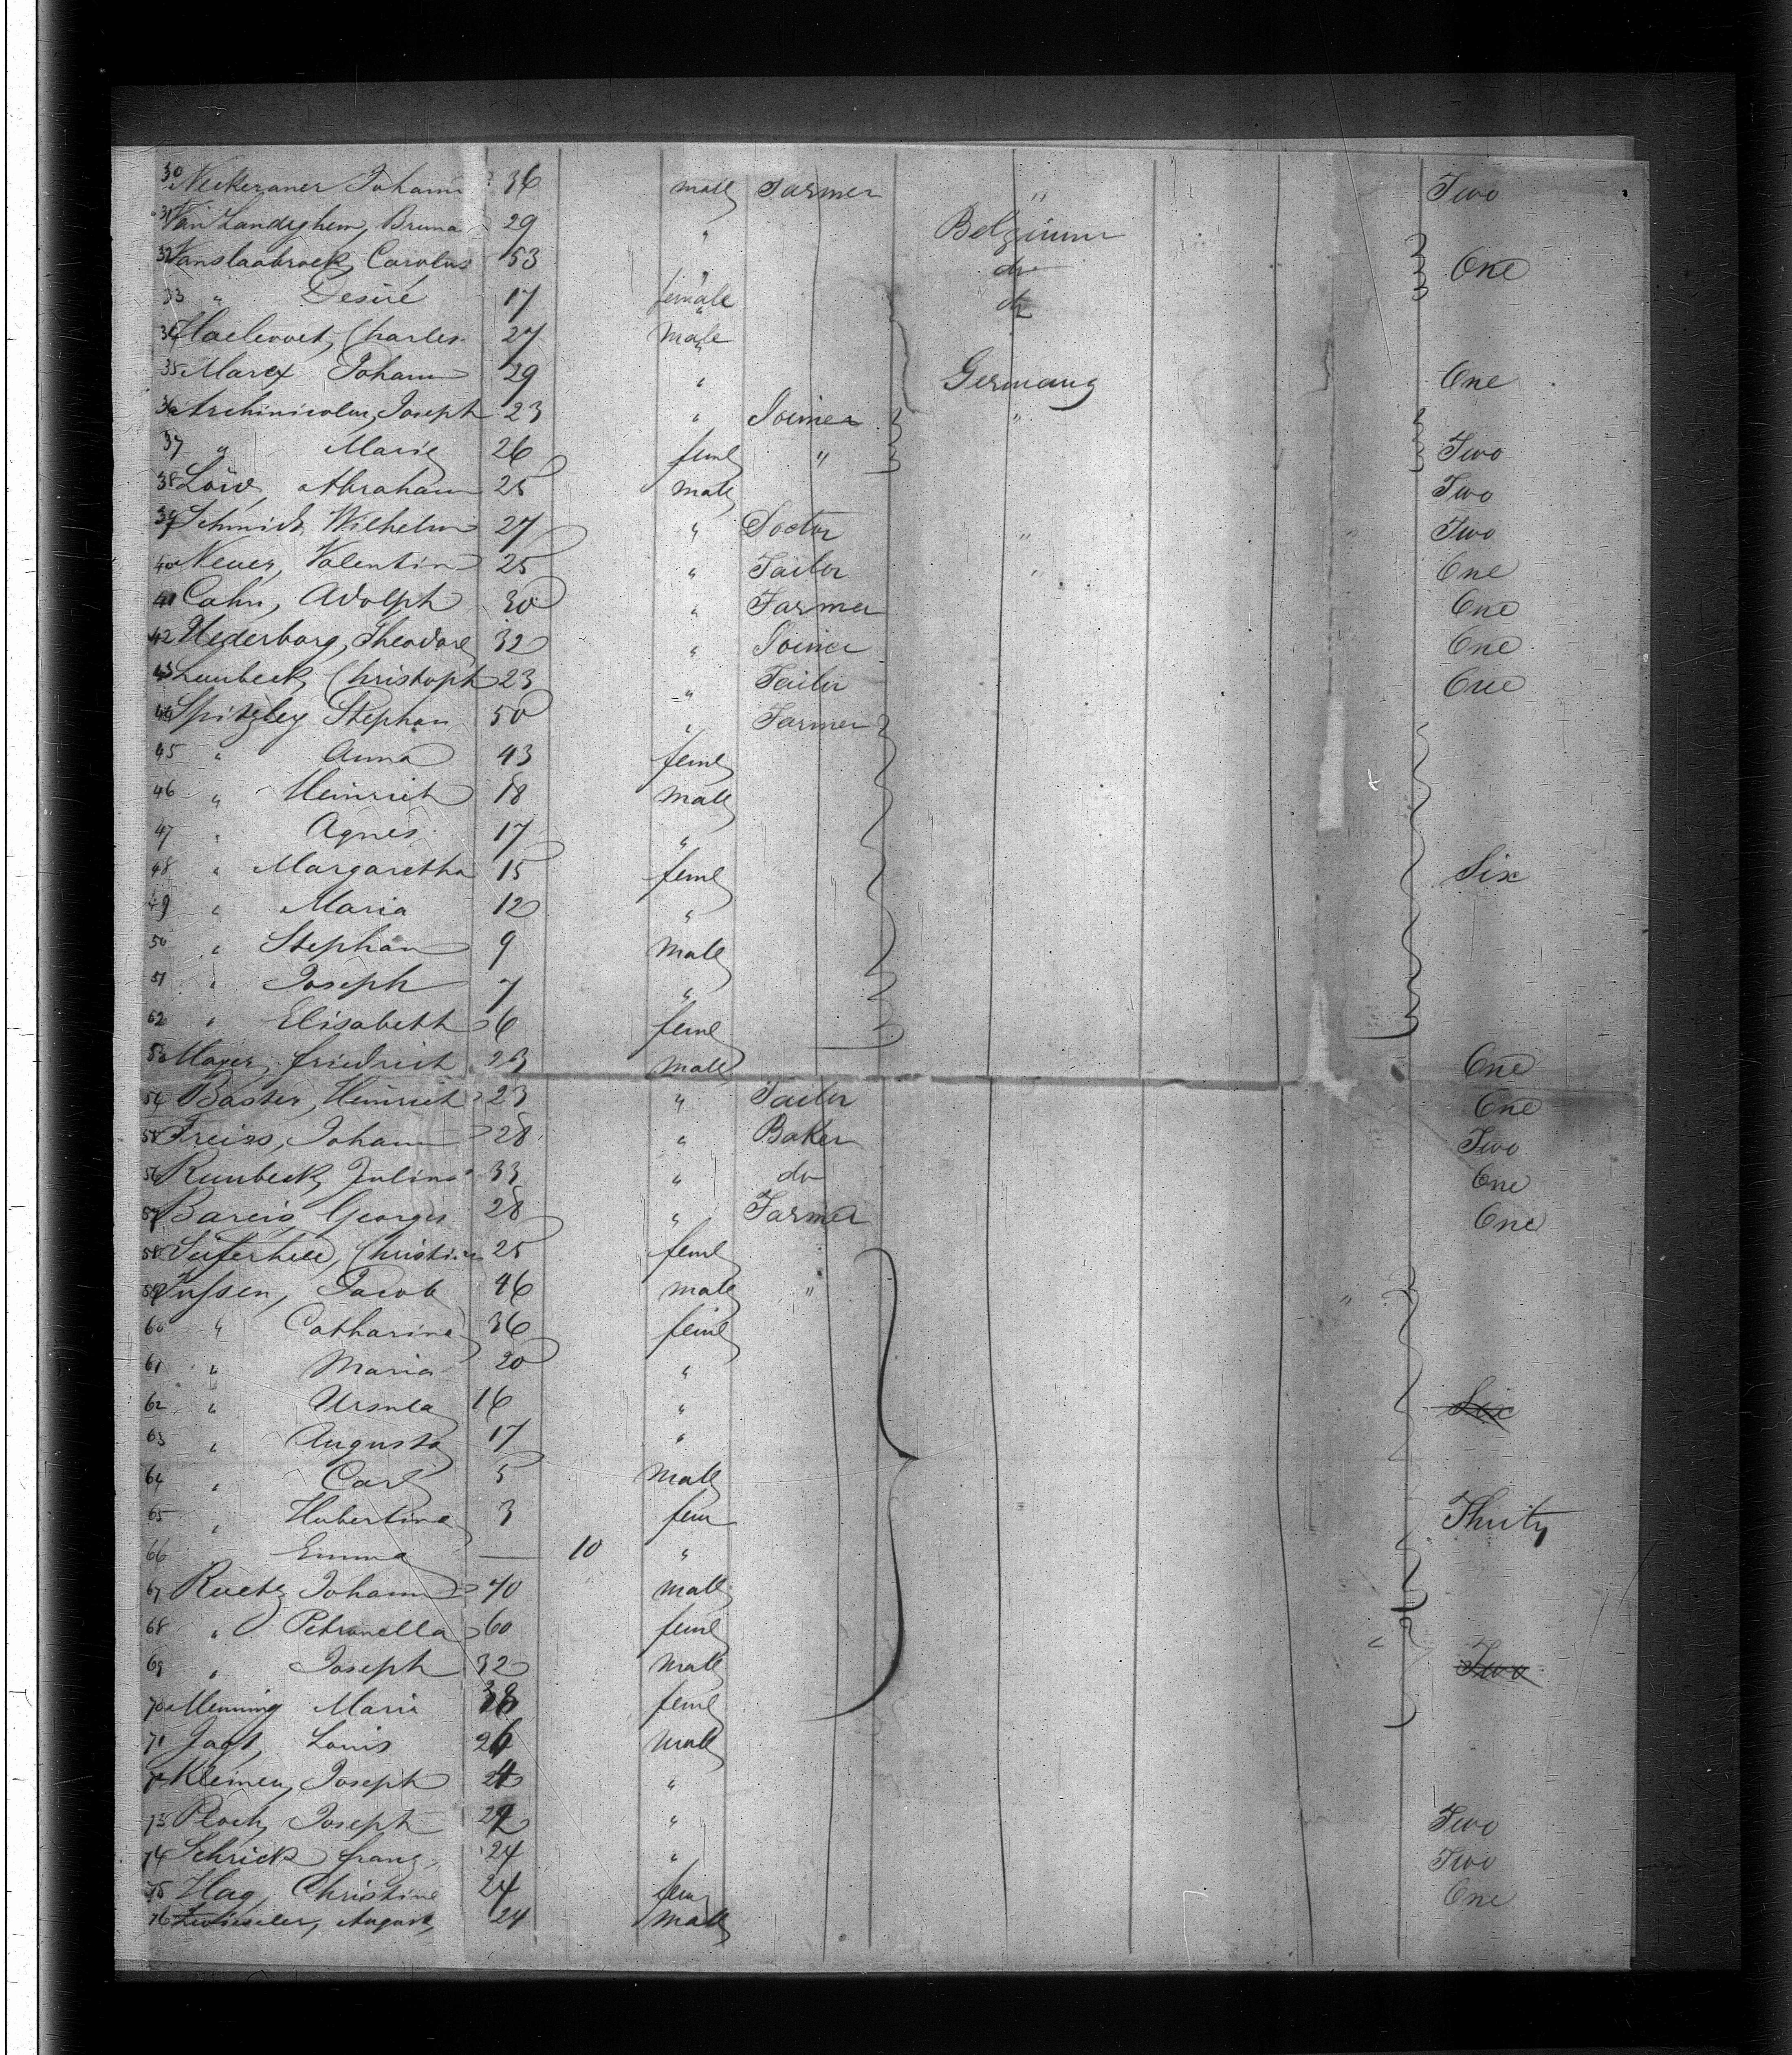 30 Neckeraner Johann 36 male Farmer " Two
31 Van Landeghem, Bruna 29 " Belgium
32 Vanslaabroek, Carolus 53 " do One
33 " Desiré 17 female do
34 Haelevoet, Charles 27 male "
35 Marex Johann 29 " Germany One
36 Archinicolas, Joseph 23 " Joiner "
37 " Marie 26 feml " Two
38 Löw, Abraham 25 male Two
39 Schmidt, Wilhelm 27 " Doctor " " Two
40 Neuer, Valentin 25 " Tailor " One
41 Cahn, Adolph 30 " Farmer One
42 Uederborg, Theodore 32 " Joiner One
43 Lumbeck, Christoph 23 " Tailor One
44 Spitzley Stephan 50 " Farmer
45 " Anna 43 feml
46 " Heinrich 18 male
47 " Agnes 17 "
48 " Margaretha 15 feml Six
49 " Maria 12 "
50 " Stephan 9 male
51 " Joseph 7 "
52 " Elisabeth 6 feml
53 Mayer, Friedrich 23 male One
54 Baster, Heinrich 23 " Tailor One
55 Freiss, Johann 28 " Baker Two
56 Rumbeck, Julius 33 " do One
57 Bareis, Georges 28 " Farmer One
58 Christine 25 feml
59 Jussen, Jacob 46 male " "
60 " Catharine 36 feml
61 " Maria 20 "
62 " Ursula 16 " Six
63 " Augusta 17 "
64 " Carl 5 male
65 " Hubertina 3 fem Thirty
66 Emma — 10 "
67 Ruetz Johann 70 male
68 " Petronella 60 feml "
69 " Joseph 32 male Two
70 Menning Maria 38 feml
71 Jagt, Louis 26 male
72 Kleinen, Joseph 24 "
73 Ploch, Joseph 29 " Two
74 Schrick franz 24 " Two
75 Hag, Christine 24 fem One
76 August 24 male